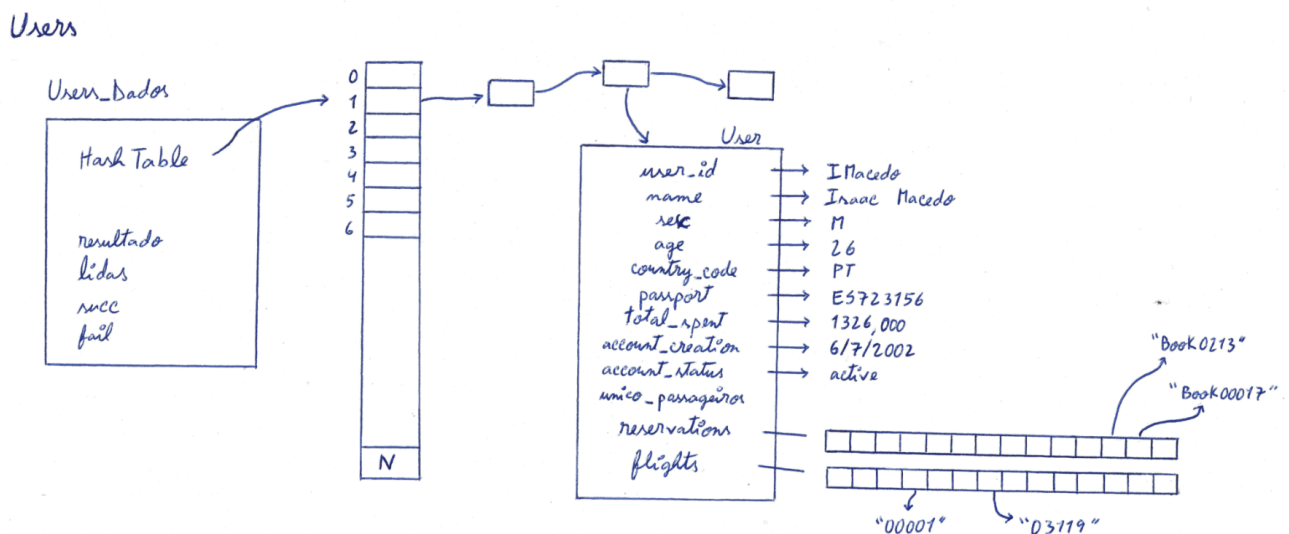 Users
Users_Dados
Hash Table
resultado
lidas
succ
fail
0
1
2
3
4
5
6
N
User
user_id IMacedo
name Isaac Macedo
sex M
age 26
country_code PT
passport ES723156
total_spent 1326,000
account_creation 6/7/2002
account_status active
unico_passageiros
reservations
flights
"Book0213"
"Book00017"
"00001"
"03119"